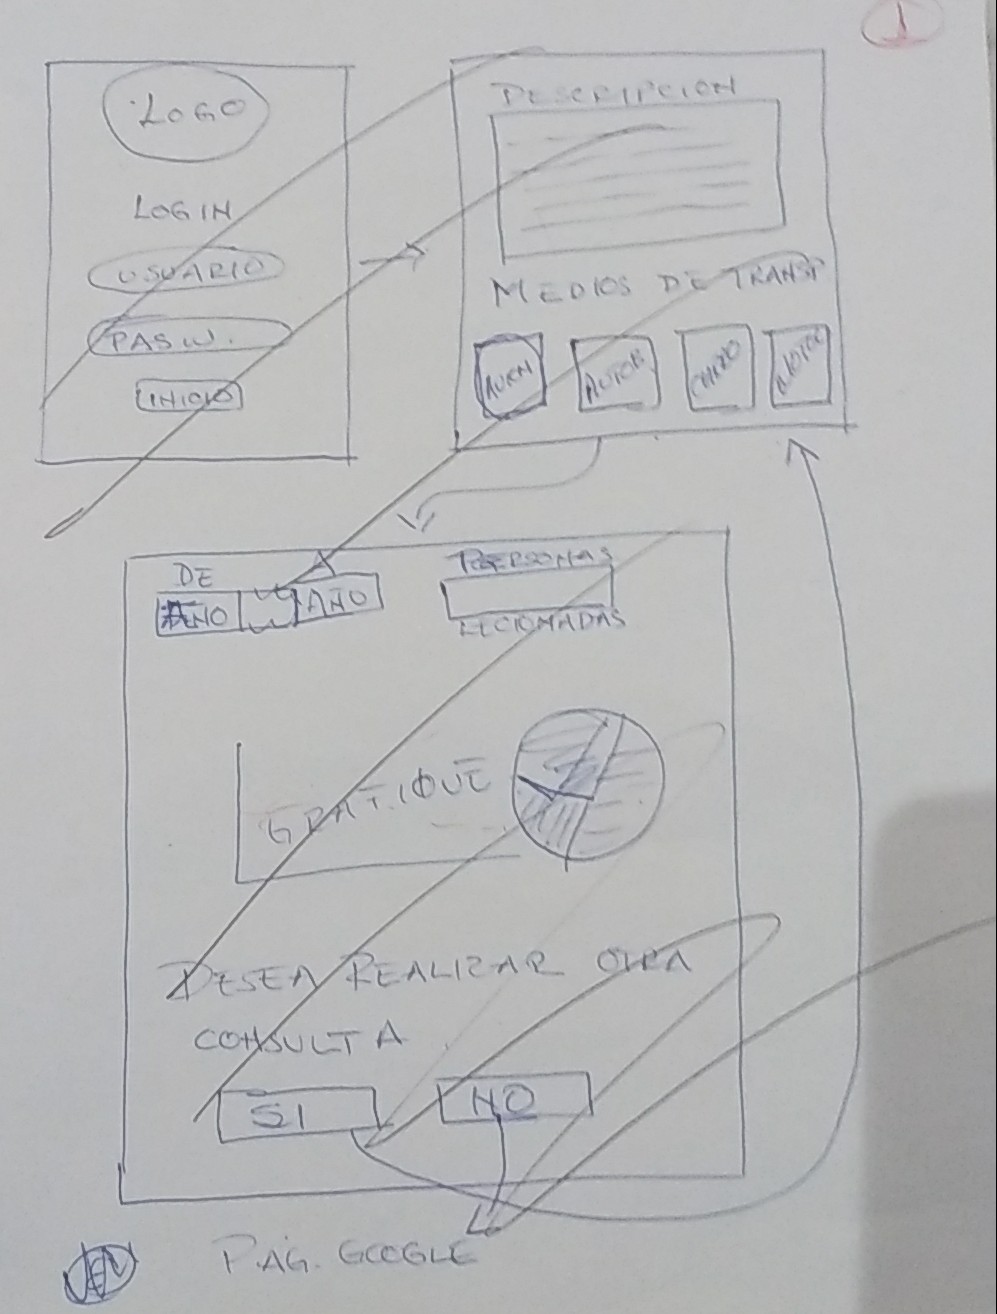 1
LOGO
LOGIN
USUARIO
PASW.
INICIO
DESCRIPCION
MEDIOS DE TRANSP
AUTOB
CARRO
DE A
AÑO AÑO
PERSONAS
LECIONADAS
GRAFIQUE
DESEA REALIZAR OTRA
CONSULTA
SI NO
PAG. GOOGLE